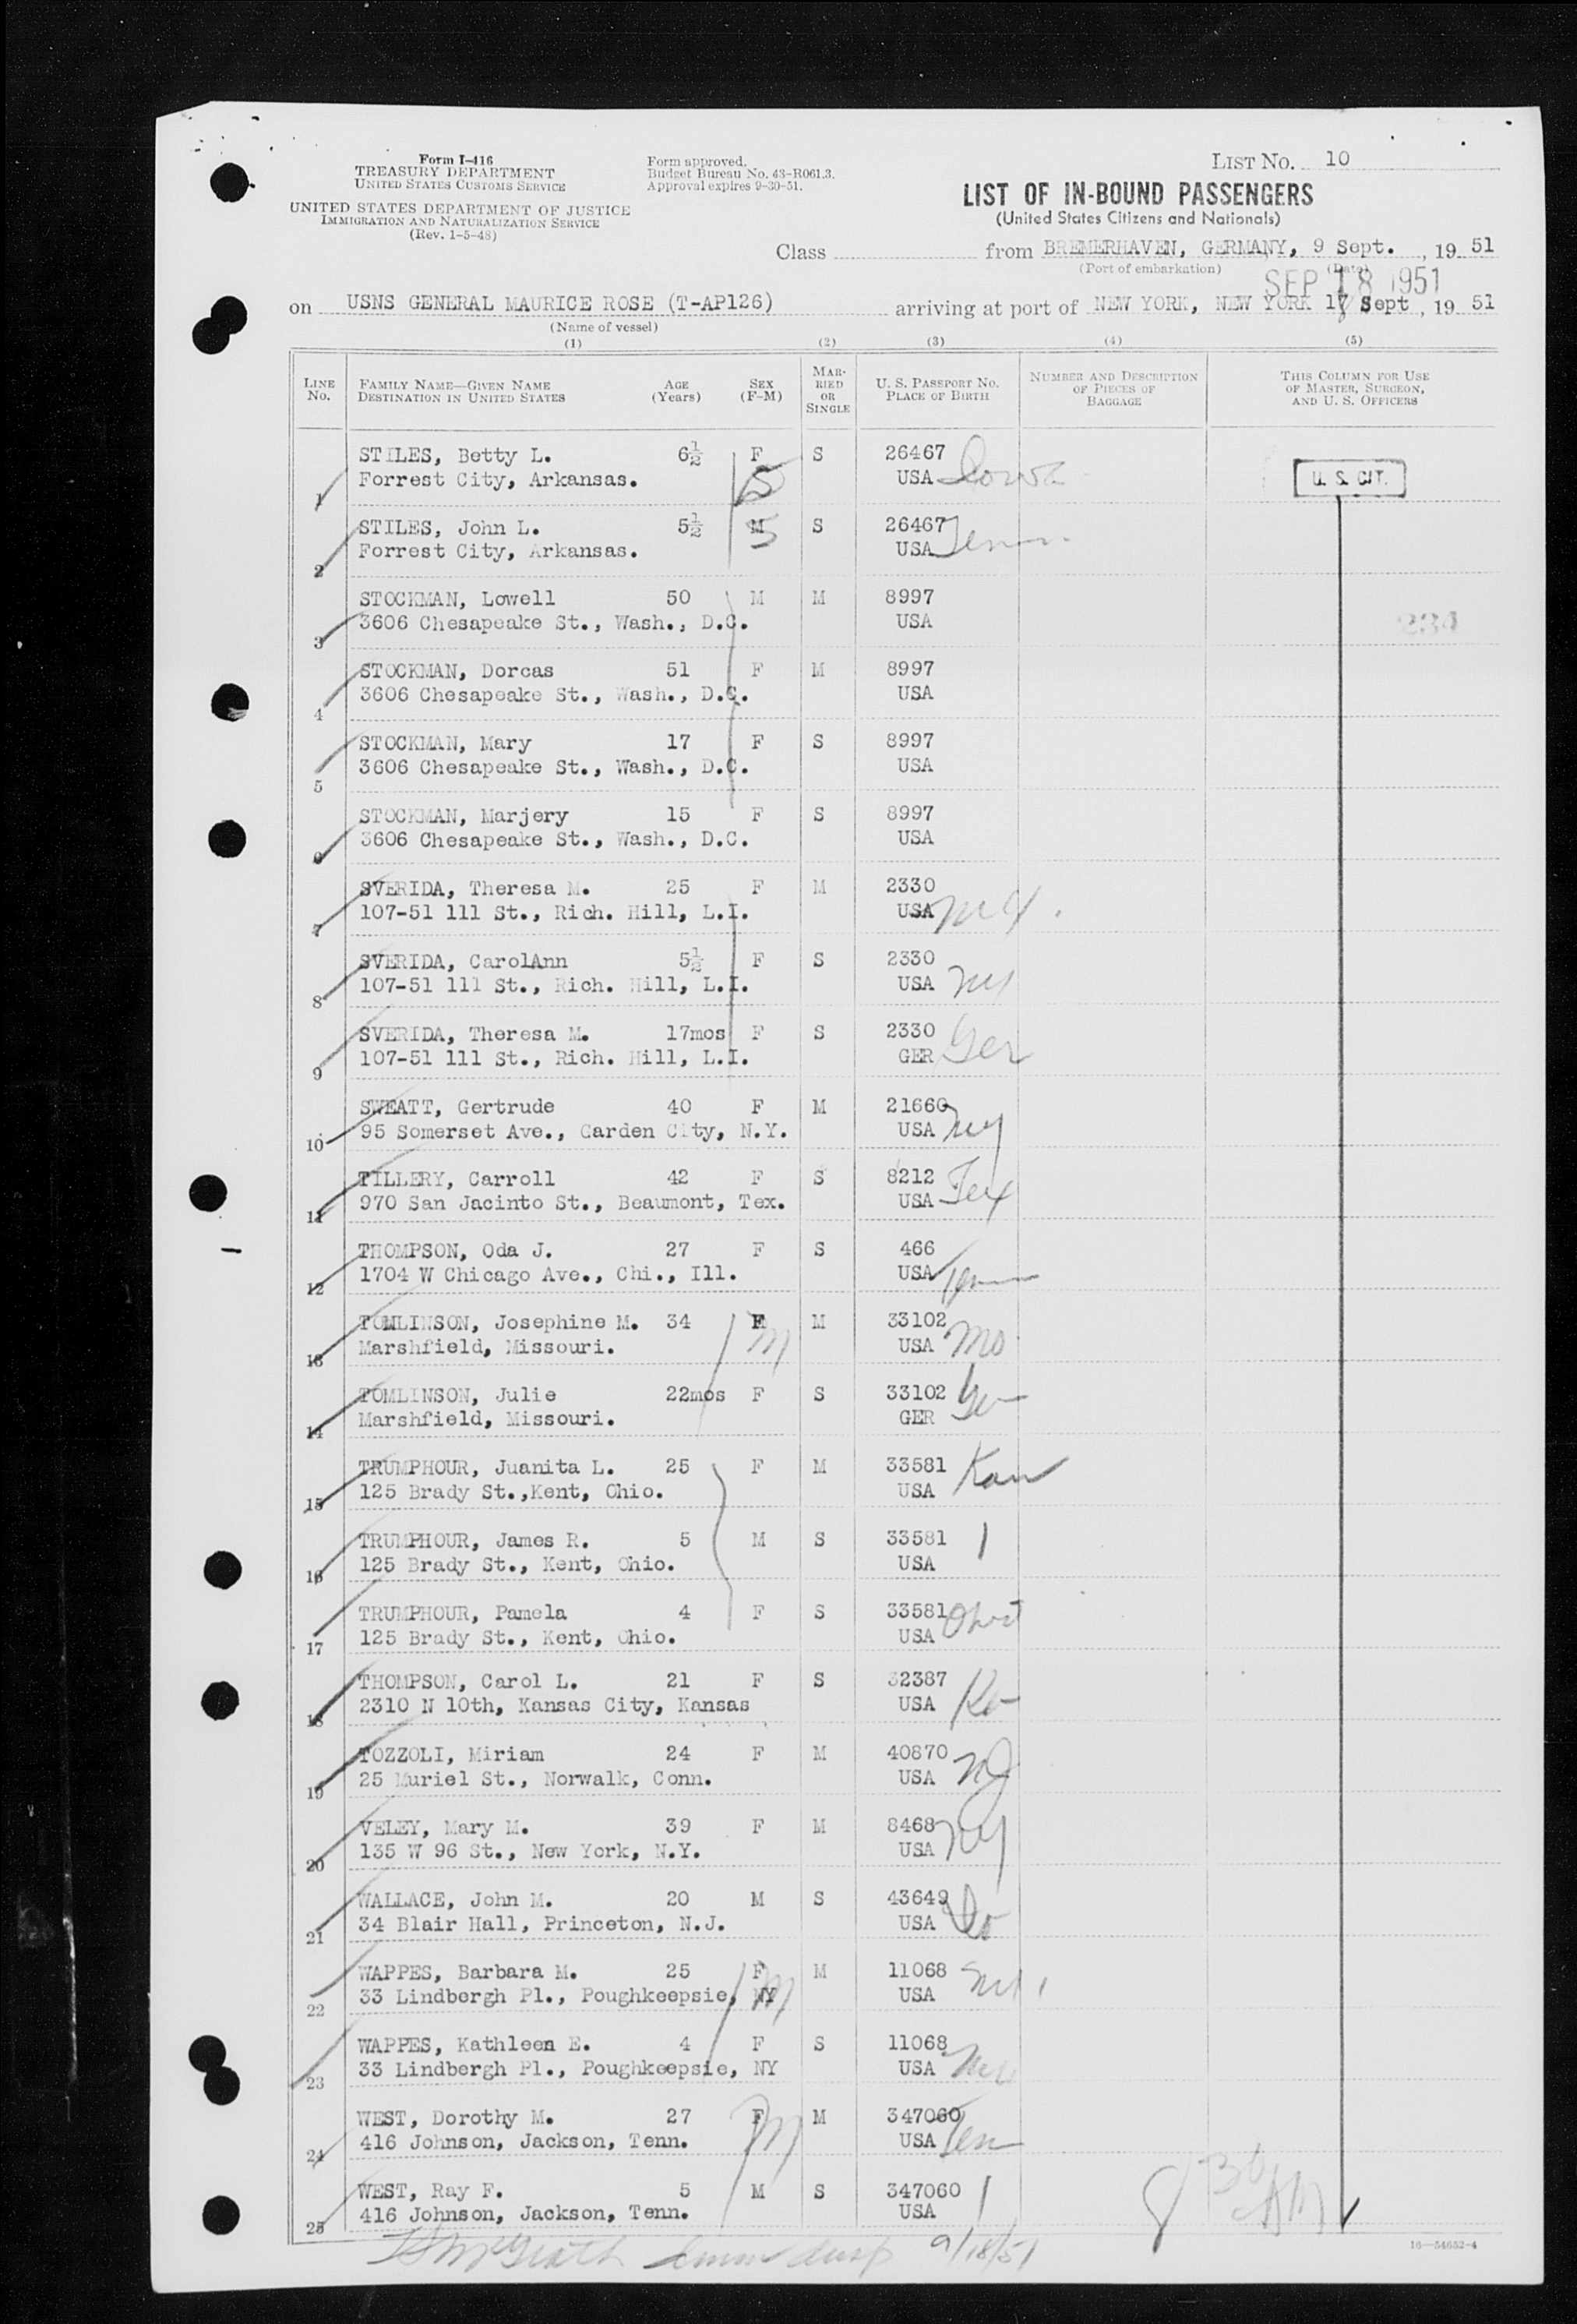 Form I-416
TREASURY DEPARTMENT
UNITED STATES CUSTOMS SERVICE
UNITED STATES DEPARTMENT OF JUSTICE
IMMIGRATION AND NATURALIZATION SERVICE
(Rev. 1-5-48)
Form approved.
Budget Bureau No. 43-R061.3.
Approval expires 9-30-51.
LIST No. 10
LIST OF IN-BOUND PASSENGERS
(United States Citizens and Nationals)
Class from BREMERHAVEN, GERMANY, 9 Sept. , 19 51
(Port of embarkation) (Date)
SEP 18 1951
on USNS GENERAL MAURICE ROSE (T-AP126) arriving at port of NEW YORK, NEW YORK 18 Sept , 19 51
(Name of vessel)
(1) (2) (3) (4) (5)
LINE No. FAMILY NAME—GIVEN NAME DESTINATION IN UNITED STATES AGE (Years) SEX (F-M) MARRIED OR SINGLE U. S. PASSPORT NO. PLACE OF BIRTH NUMBER AND DESCRIPTION OF PIECES OF BAGGAGE THIS COLUMN FOR USE OF MASTER, SURGEON, AND U. S. OFFICERS
STILES, Betty L. 6½ F S 26467
1 Forrest City, Arkansas. 5 USA Iowa U. S. CIT.
STILES, John L. 5½ M S 26467
2 Forrest City, Arkansas. 5 USA Tenn
STOCKMAN, Lowell 50 M M 8997
3 3606 Chesapeake St., Wash., D.C. USA 234
STOCKMAN, Dorcas 51 F M 8997
4 3606 Chesapeake St., Wash., D.C. USA
STOCKMAN, Mary 17 F S 8997
5 3606 Chesapeake St., Wash., D.C. USA
STOCKMAN, Marjery 15 F S 8997
6 3606 Chesapeake St., Wash., D.C. USA
SVERIDA, Theresa M. 25 F M 2330
7 107-51 111 St., Rich. Hill, L.I. USA NY.
SVERIDA, CarolAnn 5½ F S 2330
8 107-51 111 St., Rich. Hill, L.I. USA NY
SVERIDA, Theresa M. 17mos F S 2330
9 107-51 111 St., Rich. Hill, L.I. GER Ger
SWEATT, Gertrude 40 F M 21660
10 95 Somerset Ave., Garden City, N.Y. USA NY
TILLERY, Carroll 42 F S 8212
11 970 San Jacinto St., Beaumont, Tex. USA Tex
THOMPSON, Oda J. 27 F S 466
12 1704 W Chicago Ave., Chi., Ill. USA
TOMLINSON, Josephine M. 34 F M 33102
13 Marshfield, Missouri. M USA Mo
TOMLINSON, Julie 22mos F S 33102
14 Marshfield, Missouri. GER Ger
TRUMPHOUR, Juanita L. 25 F M 33581
15 125 Brady St.,Kent, Ohio. USA Kan
TRUMPHOUR, James R. 5 M S 33581
16 125 Brady St., Kent, Ohio. USA
TRUMPHOUR, Pamela 4 F S 33581
17 125 Brady St., Kent, Ohio. USA Ohio
THOMPSON, Carol L. 21 F S 32387
18 2310 N 10th, Kansas City, Kansas USA
TOZZOLI, Miriam 24 F M 40870
19 25 Muriel St., Norwalk, Conn. USA NJ
VELEY, Mary M. 39 F M 8468
20 135 W 96 St., New York, N.Y. USA NY
WALLACE, John M. 20 M S 43649
21 34 Blair Hall, Princeton, N.J. USA
WAPPES, Barbara M. 25 F M 11068
22 33 Lindbergh Pl., Poughkeepsie, NY M USA
WAPPES, Kathleen E. 4 F S 11068
23 33 Lindbergh Pl., Poughkeepsie, NY USA
WEST, Dorothy M. 27 F M 347060
24 416 Johnson, Jackson, Tenn. M USA Ten
WEST, Ray F. 5 M S 347060
25 416 Johnson, Jackson, Tenn. USA
9/18/51
16—54652-4